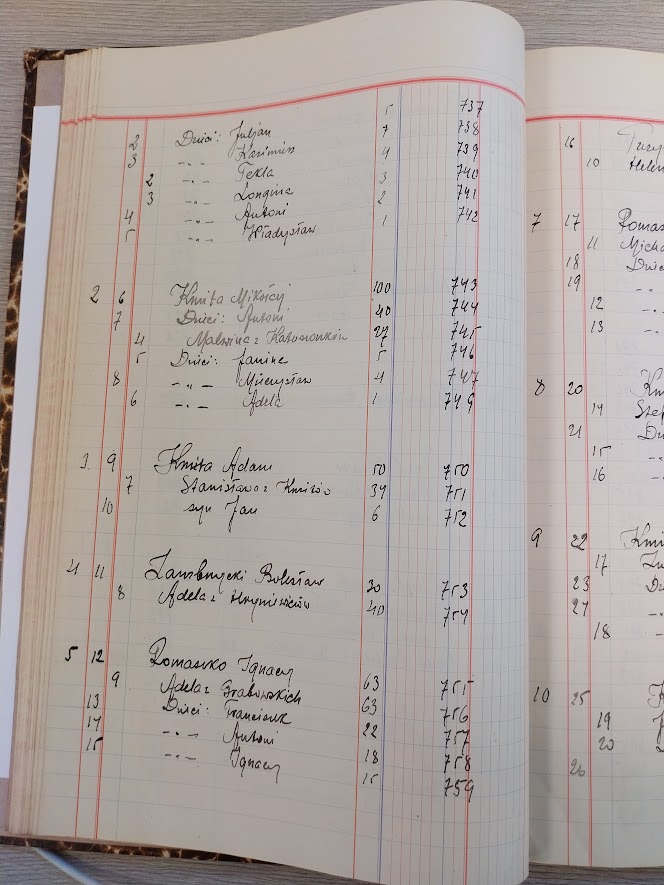 5 737
2 Dzieci: Juljan 7 738
3 -„- Kazimierz 4 739
2 -„- Tekla 3 740
3 -„- Longina 2 741
4 -„- Antoni 1 742
5 -„- Władysław
2 6 Kmita Mikołaj 100 743
7 Dzieci: Antoni 40 744
4 Malwina z 27 745
5 Dzieci: Janina 5 746
8 -„- Mieczysław 4 747
6 -„- Adela 1 749
3 9 Kmita Adam 50 750
7 Stanisława z Kmitów 34 751
10 syn Jan 6 752
4 11 Bolesław 30 753
8 Adela z Hryniewiczów 40 754
5 12 Romaszko Ignacy
9 Adela z Grabowskich 63 755
13 Dzieci: Franciszek 63 756
14 -„- Antoni 22 757
15 -„- Ignacy 18 758
15 759
16
10 Helen
7 17 Romas
11 Micha
18 Dzie
19 -„-
12 -„-
13 -„-
8 20 Km
14 Stef
21 Dz
15 -„-
16 -„-
9 22 Kmi
17
23 Dz
24 -„-
18 -„-
10 25
19
20
26